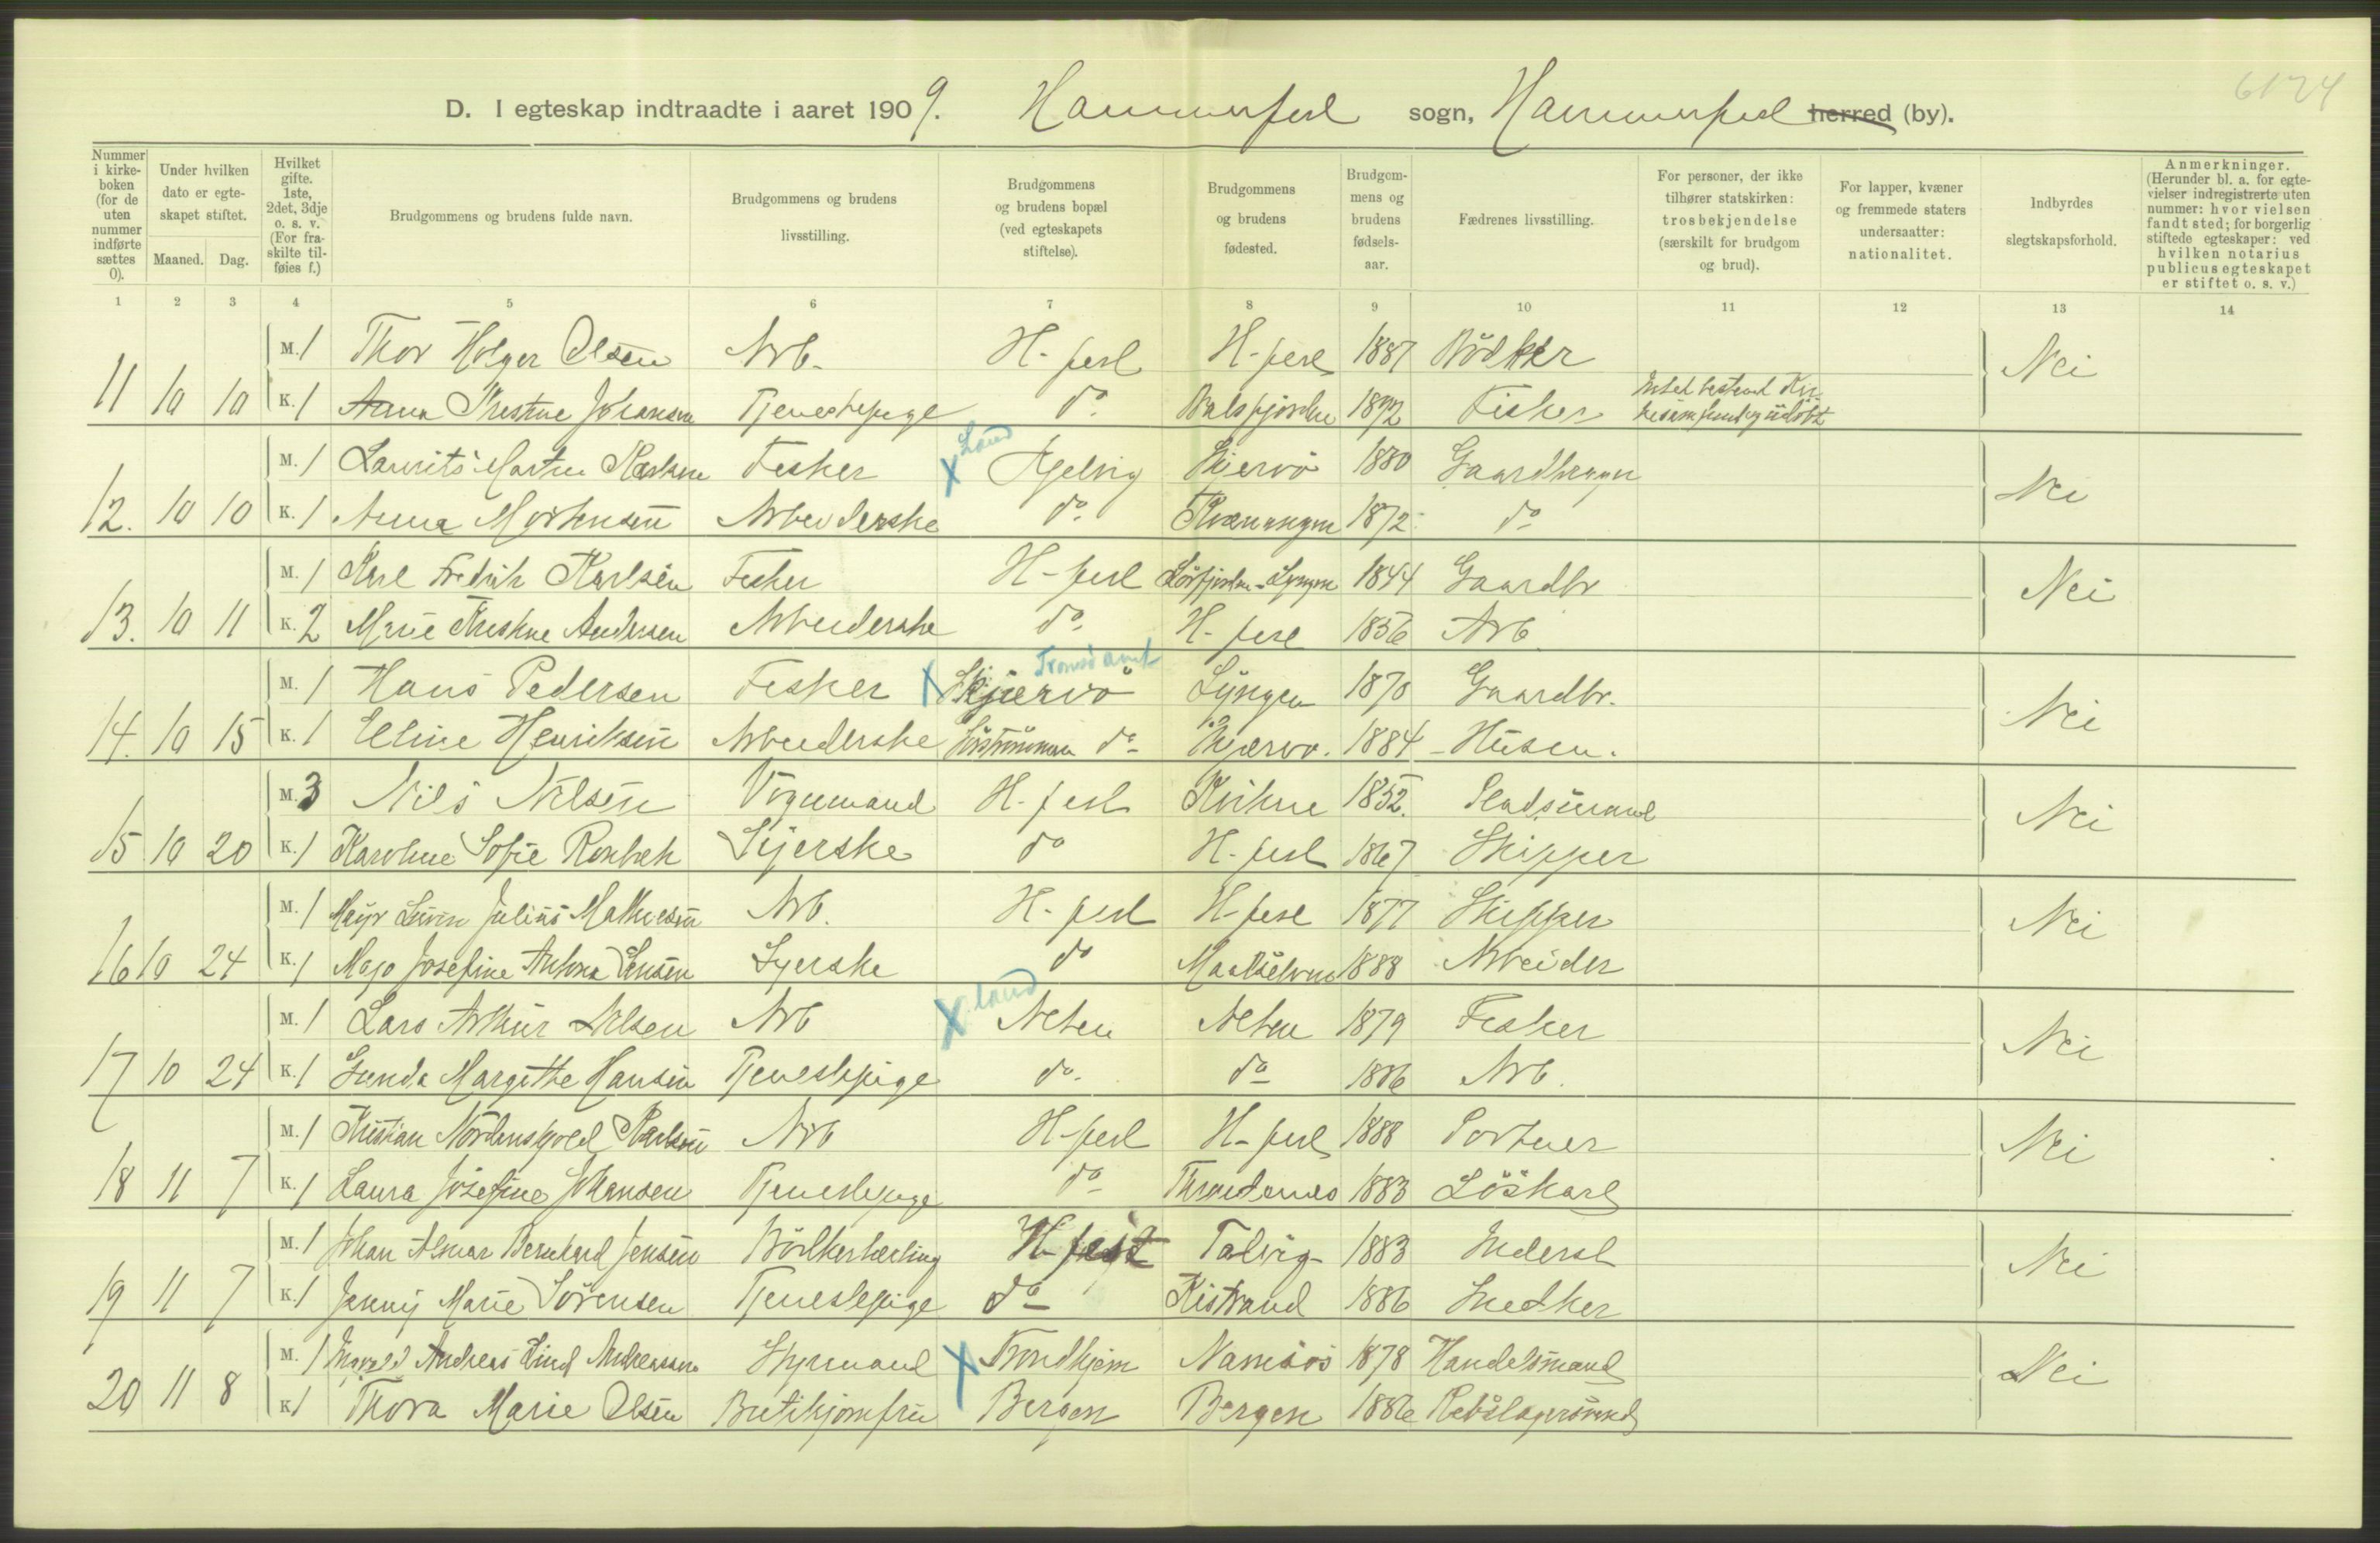 6124
D. I egteskap indtraadte i aaret 1909. Hammerfest sogn, Hammerfest herred (by).
Nummer i kirkeboken (for de uten nummer indførte sættes 0).
Under hvilken dato er egteskapet stiftet.
Maaned. Dag.
Hvilket gifte. 1ste, 2det, 3dje o. s. v. (For fraskilte tilføies f.)
Brudgommens og brudens fulde navn.
Brudgommens og brudens livsstilling.
Brudgommens og brudens bopæl (ved egteskapets stiftelse).
Brudgommens og brudens fødested.
Brudgommens og brudens fødselsaar.
Fædrenes livsstilling.
For personer, der ikke tilhører statskirken: trosbekjendelse (særskilt for brudgom og brud).
For lapper, kvæner og fremmede staters undersaatter: nationalitet.
Indbyrdes slegtskapsforhold.
Anmerkninger. (Herunder bl. a. for egtevielser indregistrerte uten nummer: hvor vielsen fandt sted; for borgerlig stiftede egteskaper: ved hvilken notarius publicus egteskapet er stiftet o. s. v.)
1 2 3 4 5 6 7 8 9 10 11 12 13 14
M. 1 Thor Holger Olsen Arb. H-fest H-fest 1887 Bödker Nei
11 10 10 K. 1 Anna Kristine Johansen Tjenestepige do. Balsfjorden 1892 Fisker
Land
M. 1 Laurits Martin Fisker X Skjervö 1880 Gaardbruger Nei
12. 10 10 K. 1 Anna Mortensen Arbeiderske do. Kvænangen 1872 do
M. 1 Karl Fredrik Karlsen Fisker H-fest Lyngen 1844 Gaardbr Nei
13. 10 11 K. 2 Marie Kristine Andersen Arbeiderske do. H-fest 1856 Arb
Tromsö amt
M. 1 Hans Pedersen Fisker X Skjærvö Lyngen 1870 Gaardbr. Nei
14. 10 15 K. 1 Elline Henriksen Arbeiderske do Skjærvö. 1884 Husm.
M. 3 Nils Nilsen Vognmand H-fest Kvikne 1852. Pladsmand Nei
15 10 20 K. 1 Karoline Sofie Syerske do H-fest 1867 Skipper
M. 1 Julius Mathiesen Arb. H-fest H-fest 1877 Skipper Nei
16 10 24 K. 1 Josefine Antona Jensen Syerske do Maalselven 1888 Arbeider
land
M. 1 Lars Arthur Nilsen Arb X Alten Alten 1879 Fisker Nei
17 10 24 K. 1 Gunda Margithe Hansen Tjenestepige do. do 1886 Arb.
M. 1 Kristian Nordenskjold Karlsen Arb H-fest H-fest 1888 Portner Nei
18 11 7 K. 1 Laura Josefine Johansen Tjenestepige do Throndenes 1883 Löskarl
M. 1 Johan Almar Bernhard Jensen Bödkerlærling H-fest Talvig 1883 Inderst Nei
19 11 7 K. 1 Jenny Marie Sörensen Tjenestepige do Kistrand 1886 Snedker
M. 1 Andreas Lind Andreassen Styrmand X Trondhjem Namsos 1878 Handelsmand Nei
20 11 8 K. 1 Thora Marie Olsen Butikjomfru Bergen Bergen 1886 Rebslagersvend